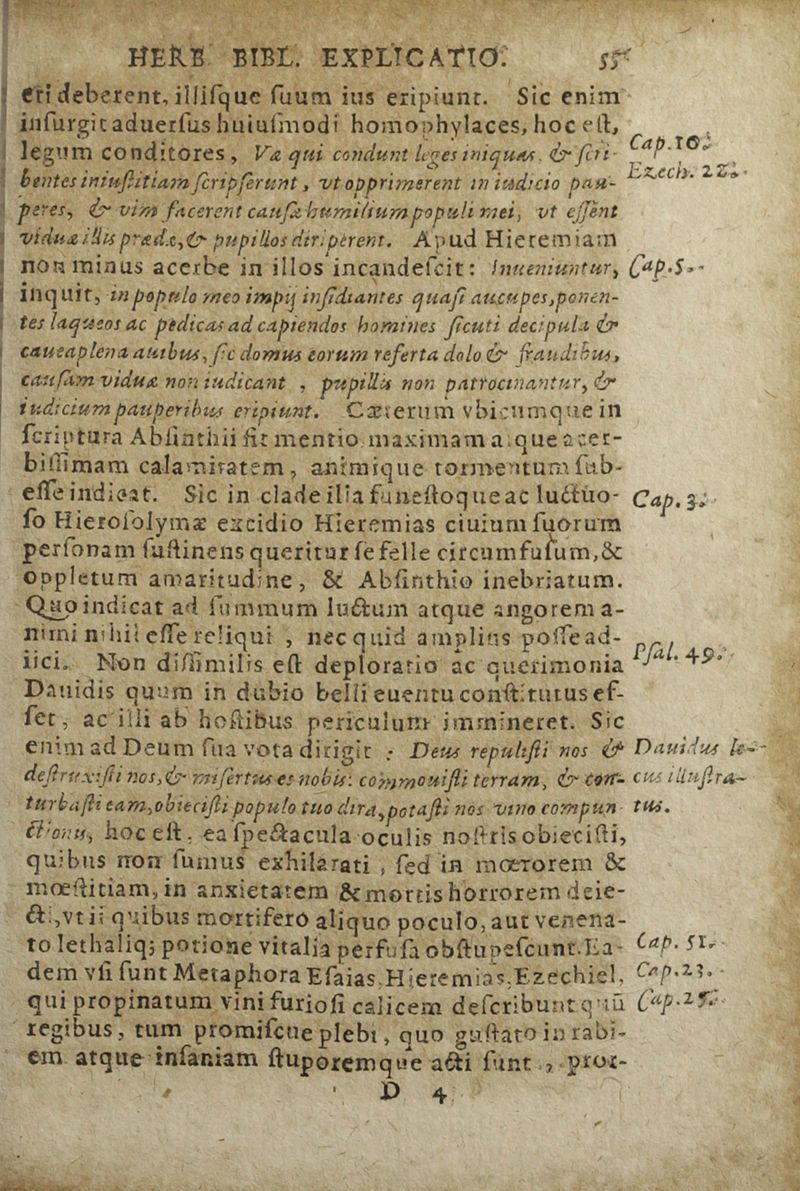 HERB BIBL. EXPLICATIO. 55
eri deberent, illiſque ſuum ius eripiunt. Sic enim
inſurgit aduerſus huiuſmodi homophylaces, hoc eſt,
legum conditores, Væ qui condunt leges iniquas, & ſcri- Cap. 10.
bentes iniuſtitiam ſcripſerunt, vt opprimerent in iudicio pau- Ezech. 22.
peres, & vim facerent cauſæ humilium populi mei, vt eſſent
viduæ illis prædæ, & pupillos diriperent. Apud Hieremiam
non minus acerbe in illos incandeſcit: Inueniuntur, Cap. 5.
inquit, in populo meo impij inſidiantes quaſi aucupes, ponen-
tes laqueos ac pedicas ad capiendos homines ſicuti decipula &
cauea plena auibus, ſic domus eorum referta dolo & fraudibus,
cauſam viduæ non iudicant, pupillis non patrocinantur, &
iudicium pauperibus eripiunt. Cæterum vbicumque in
ſcriptura Abſinthii fit mentio, maximam atque acer-
biſſimam calamitatem, animique tormentum ſub-
eſſe indicat. Sic in clade illa funeſtoque ac luctuo- Cap. 3.
ſo Hieroſolymæ excidio Hieremias ciuium ſuorum
perſonam ſuſtinens queritur ſe felle circumfuſum, &
oppletum amaritudine, & Abſinthio inebriatum.
Quo indicat ad ſummum luctum atque angorem a-
nimi nihil eſſe reliqui, nec quid amplius poſſe ad-
iici. Non diſſimilis eſt deploratio ac querimonia Pſal. 49.
Dauidis quum in dubio belli euentu conſtitutus eſ-
ſet, ac illi ab hoſtibus periculum immineret. Sic
enim ad Deum ſua vota dirigit : Deus repuliſti nos & Dauidus
deſtruxiſti nos, & miſertus es nobis: commouiſti terram, & con- cus illuſtra-
turbaſti eam, obieciſti populo tuo dira, potaſti nos vino compun- tus.
ctionis, hoc eſt, ea ſpectacula oculis noſtris obieciſti,
quibus non ſumus exhilarati, ſed in mœrorem &
mœſtitiam, in anxietatem & mortis horrorem deie-
cti, vt ii quibus mortifero aliquo poculo, aut venena-
to lethaliq; potione vitalia perfuſa obſtupeſcunt. Ea- Cap. 51.
dem vſi ſunt Metaphora Eſaias, Hieremias, Ezechiel, Cap. 23.
qui propinatum vini furioſi calicem deſcribunt quū Cap. 25.
regibus, tum promiſcue plebi, quo guſtato in rabi-
em atque inſaniam ſtuporemque acti ſunt, pror-
D 4